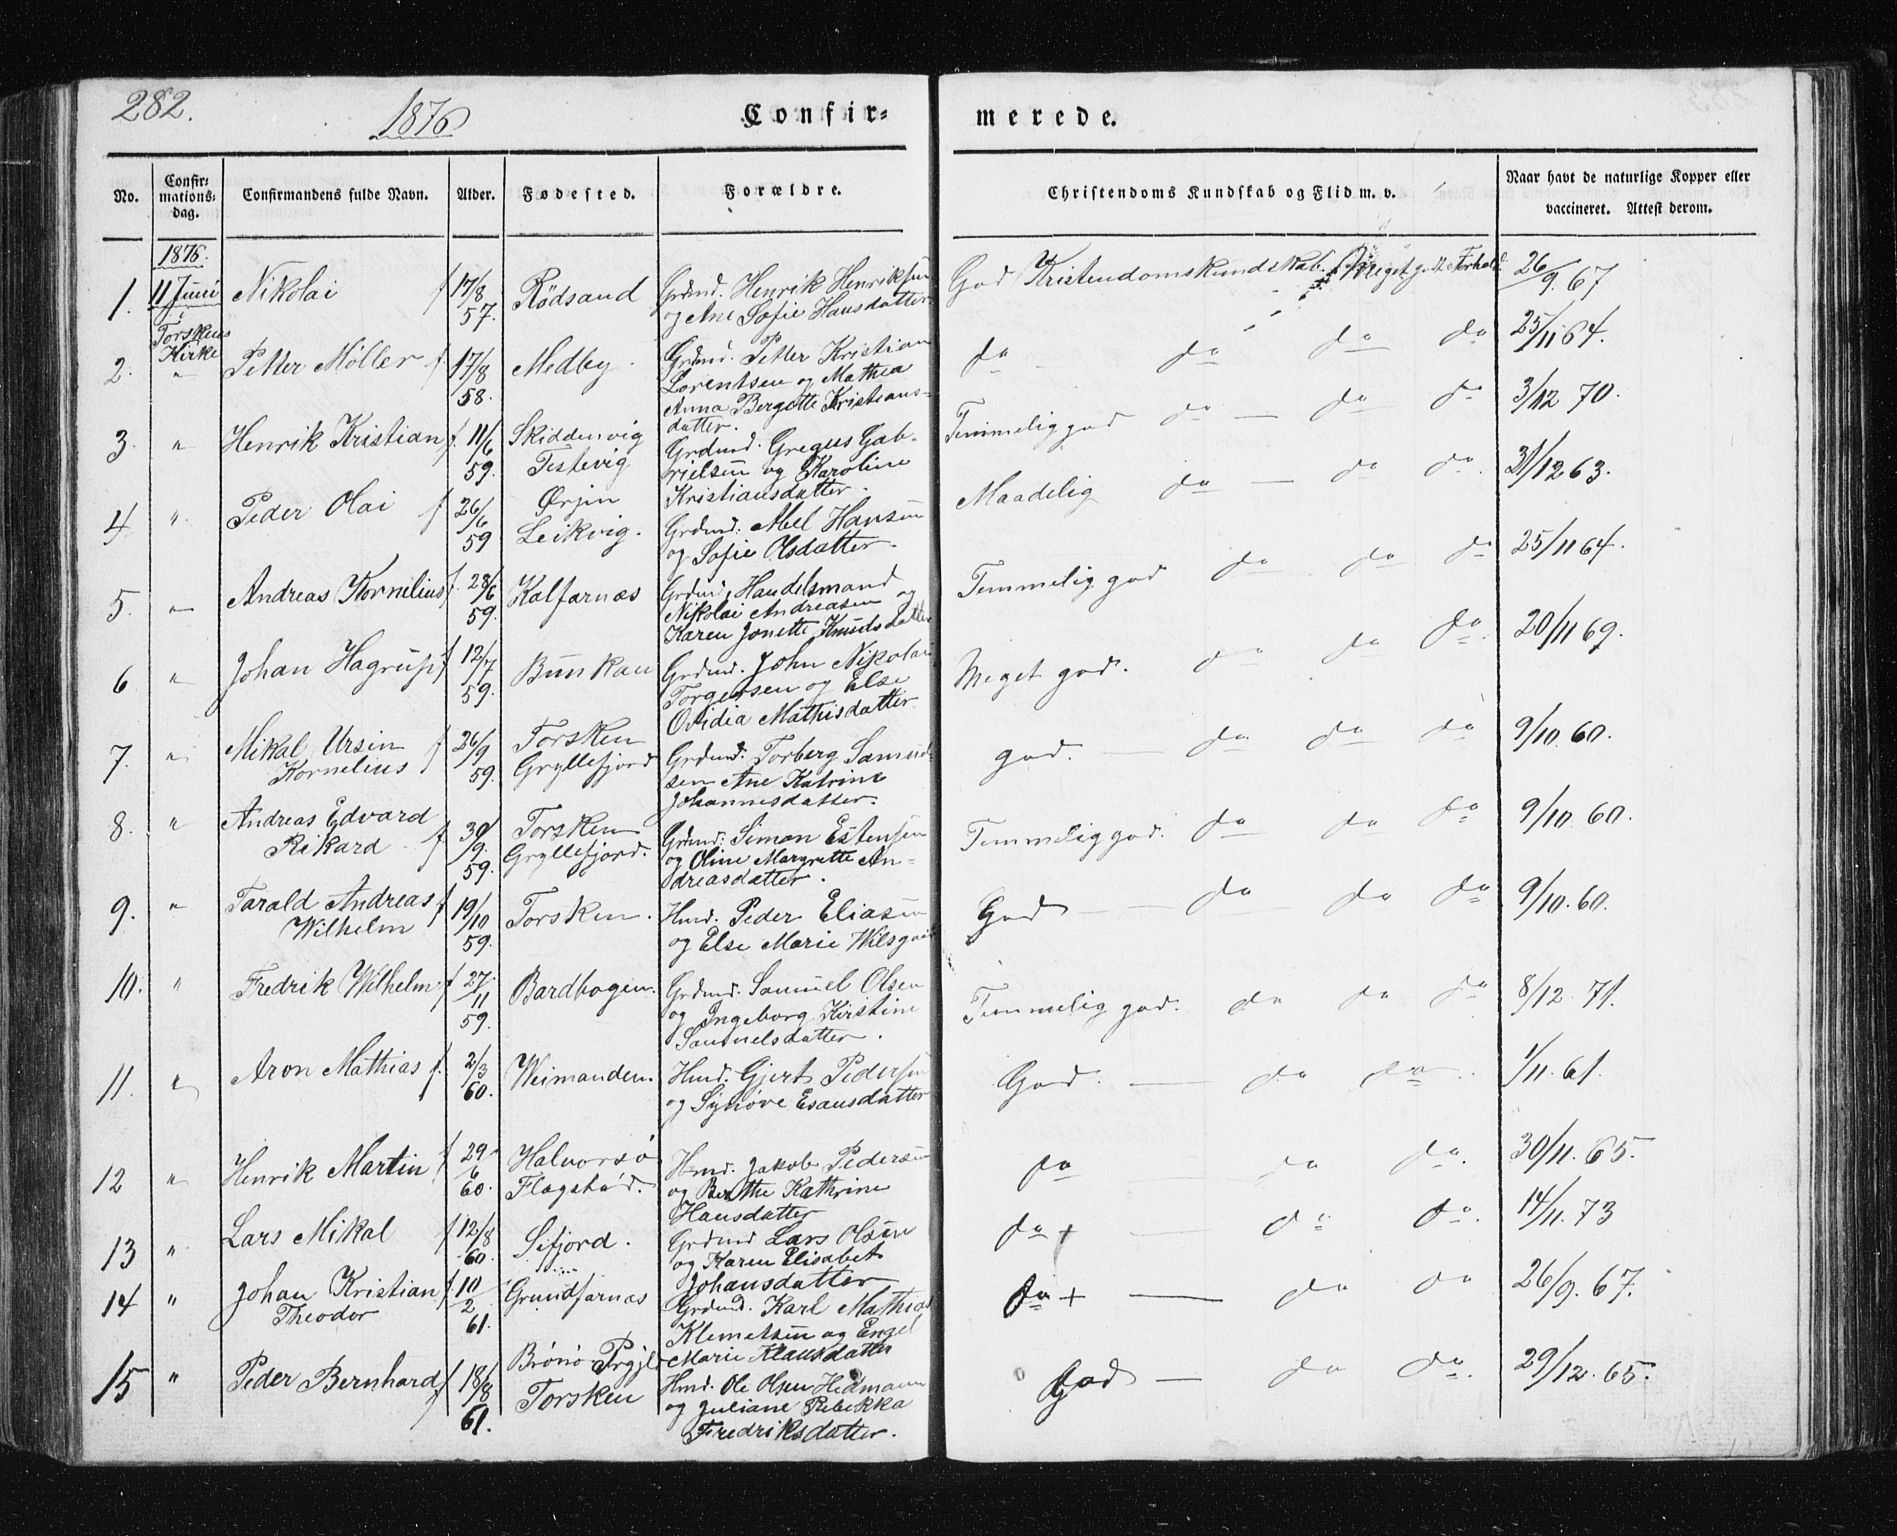 282.
1876
Confir-
merede.
No.
Confir-
mations-
dag.
Confirmandens fulde Navn.
Alder.
Fødested.
Forældre.
Christendoms Kundskab og Flid m. v.
Naar havt de naturlige Kopper eller
vaccineret. Attest derom.
1876.
1. 11 Juni Nikolai f 17/8 57. Rödsand Grdmd. Henrik Henriksen
og Ane Sofie Hansdatter
God Kristendomskundskab. Meget godt Forhold. 26/9. 67
i
Torskens
Kirke
2. " Petter Möller f 17/8 58. Medby. Grdmd. Petter Kristian
Lorentsen og Mathea
Anna Bergitte Kristians-
datter.
do do do do 25/11 64.
3. " Henrik Kristian f. 11/6 59. Skiddenvig
Testevig
Grdmd. Gregus Gab-
rielsen og Karoline
Kristiansdatter.
Temmelig god do do do 3/12 70.
4 " Peder Olai f 26/6 59
Leikvig.
Grdmd. Abel Hansen
og Sofie Olsdatter.
Maadelig do do do. 31/12 63.
5. " Andreas Kornelius f. 28/6 59. Kalfarnæs Grdmd, Handelsmand
Nikolai Andreasen og
Karen Jonette Knudsdatter
Temmelig god do do do 25/11 64.
6 " Johan Hagrup f 12/7 59. Bunkan Grdmd. John Nikolai
Torgersen og Else
Ovidia Mathisdatter
Meget god. do do do. 20/11 69.
7. " Mikal Ursin
Kornelius
f 26/9 59. Torsken
Gryllefjord
Grdmd. Torberg Samuel-
sen Ane Katrine
Johannesdatter.
god. do do do 9/10. 60.
8. " Andreas Edvard
Rikard f 30/9. 59. Torsken
Gryllefjord.
Grdmd: Simon Estensen
og Oline Margrette An-
dreasdatter.
Temmelig god. do do do 9/10. 60.
9. " Tarald Andreas
Wilhelm
f 19/10 59. Torsken. Hmd. Peder Eliasen
og Else Marie Wilsgaar
God do do do 9/10. 60.
10. " Fredrik Wilhelm f 27/11 59. Bardbogen. Grdmd. Samuel Olsen
og Ingeborg Kirstine
Samuelsdatter.
Temmelig god. do do do 8/12. 71.
11. " Aron Mathias f. 2/3 60. Weimanden. Hmd. Gjert Pedersen
og Synöve Esausdatter
God. do do. 1/11. 61.
12 " Henrik Martin f 29/6 60. Halvorsö
Flagstad.
Hmd. Jakob Pedersen
og Berthe Kathrine
Hansdatter
do do do. 30/11. 65.
13 " Lars Mikal f 12/8 60. Sifjord. Grdmd Lars Olsen
og Karen Elisabet
Johansdatter
do + do do. 14/11. 73
14 " Johan Kristian
Theodor
f 10/2 61. Grundfarnæs Grdmd. Karl Mathias
Klemetsen og Engel
Marie Klausdatter
do + do do 26/9. 67.
15 " Peder Bernhard f 18/8 61. Brönö Prgjld
Torsken
Hmd. Ole Olsen Hedmann
og Juliane Rebekka
Fredriksdatter.
God do do. 29/12. 65.